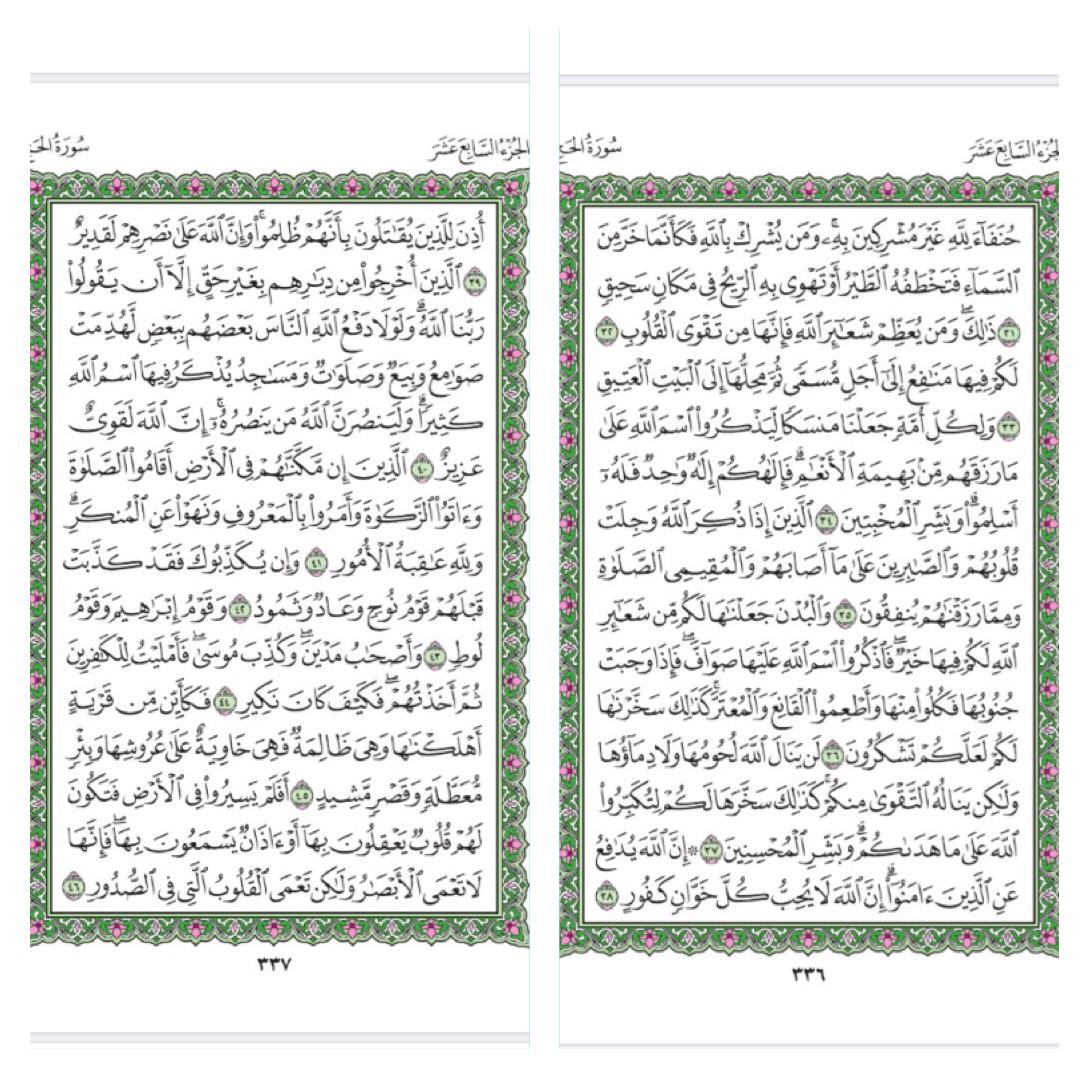 الجزء السابع عشر
سورة الحج
حُنَفَآءَ لِلَّهِ غَيْرَ مُشْرِكِينَ بِهِۦۚ وَمَن يُشْرِكْ بِٱللَّهِ فَكَأَنَّمَا خَرَّ مِنَ
ٱلسَّمَآءِ فَتَخْطَفُهُ ٱلطَّيْرُ أَوْ تَهْوِى بِهِ ٱلرِّيحُ فِى مَكَانٍ سَحِيقٍ
٣١ ذَٰلِكَۖ وَمَن يُعَظِّمْ شَعَٰٓئِرَ ٱللَّهِ فَإِنَّهَا مِن تَقْوَى ٱلْقُلُوبِ ٣٢
لَكُمْ فِيهَا مَنَٰفِعُ إِلَىٰٓ أَجَلٍ مُّسَمًّى ثُمَّ مَحِلُّهَآ إِلَى ٱلْبَيْتِ ٱلْعَتِيقِ
٣٣ وَلِكُلِّ أُمَّةٍ جَعَلْنَا مَنسَكًا لِّيَذْكُرُوا۟ ٱسْمَ ٱللَّهِ عَلَىٰ
مَا رَزَقَهُم مِّنۢ بَهِيمَةِ ٱلْأَنْعَٰمِۗ فَإِلَٰهُكُمْ إِلَٰهٌ وَٰحِدٌ فَلَهُۥٓ
أَسْلِمُوا۟ۗ وَبَشِّرِ ٱلْمُخْبِتِينَ ٣٤ ٱلَّذِينَ إِذَا ذُكِرَ ٱللَّهُ وَجِلَتْ
قُلُوبُهُمْ وَٱلصَّٰبِرِينَ عَلَىٰ مَآ أَصَابَهُمْ وَٱلْمُقِيمِى ٱلصَّلَوٰةِ
وَمِمَّا رَزَقْنَٰهُمْ يُنفِقُونَ ٣٥ وَٱلْبُدْنَ جَعَلْنَٰهَا لَكُم مِّن شَعَٰٓئِرِ
ٱللَّهِ لَكُمْ فِيهَا خَيْرٌۖ فَٱذْكُرُوا۟ ٱسْمَ ٱللَّهِ عَلَيْهَا صَوَآفَّۖ فَإِذَا وَجَبَتْ
جُنُوبُهَا فَكُلُوا۟ مِنْهَا وَأَطْعِمُوا۟ ٱلْقَانِعَ وَٱلْمُعْتَرَّۚ كَذَٰلِكَ سَخَّرْنَٰهَا
لَكُمْ لَعَلَّكُمْ تَشْكُرُونَ ٣٦ لَن يَنَالَ ٱللَّهَ لُحُومُهَا وَلَا دِمَآؤُهَا
وَلَٰكِن يَنَالُهُ ٱلتَّقْوَىٰ مِنكُمْۚ كَذَٰلِكَ سَخَّرَهَا لَكُمْ لِتُكَبِّرُوا۟
ٱللَّهَ عَلَىٰ مَا هَدَىٰكُمْۗ وَبَشِّرِ ٱلْمُحْسِنِينَ ٣٧ ۞ إِنَّ ٱللَّهَ يُدَٰفِعُ
عَنِ ٱلَّذِينَ ءَامَنُوٓا۟ۗ إِنَّ ٱللَّهَ لَا يُحِبُّ كُلَّ خَوَّانٍ كَفُورٍ ٣٨
٣٣٦
الجزء السابع عشر
سورة الحج
أُذِنَ لِلَّذِينَ يُقَٰتَلُونَ بِأَنَّهُمْ ظُلِمُوا۟ۚ وَإِنَّ ٱللَّهَ عَلَىٰ نَصْرِهِمْ لَقَدِيرٌ
٣٩ ٱلَّذِينَ أُخْرِجُوا۟ مِن دِيَٰرِهِم بِغَيْرِ حَقٍّ إِلَّآ أَن يَقُولُوا۟
رَبُّنَا ٱللَّهُۗ وَلَوْلَا دَفْعُ ٱللَّهِ ٱلنَّاسَ بَعْضَهُم بِبَعْضٍ لَّهُدِّمَتْ
صَوَٰمِعُ وَبِيَعٌ وَصَلَوَٰتٌ وَمَسَٰجِدُ يُذْكَرُ فِيهَا ٱسْمُ ٱللَّهِ
كَثِيرًاۗ وَلَيَنصُرَنَّ ٱللَّهُ مَن يَنصُرُهُۥٓۚ إِنَّ ٱللَّهَ لَقَوِىٌّ
عَزِيزٌ ٤٠ ٱلَّذِينَ إِن مَّكَّنَّٰهُمْ فِى ٱلْأَرْضِ أَقَامُوا۟ ٱلصَّلَوٰةَ
وَءَاتَوُا۟ ٱلزَّكَوٰةَ وَأَمَرُوا۟ بِٱلْمَعْرُوفِ وَنَهَوْا۟ عَنِ ٱلْمُنكَرِۗ
وَلِلَّهِ عَٰقِبَةُ ٱلْأُمُورِ ٤١ وَإِن يُكَذِّبُوكَ فَقَدْ كَذَّبَتْ
قَبْلَهُمْ قَوْمُ نُوحٍ وَعَادٌ وَثَمُودُ ٤٢ وَقَوْمُ إِبْرَٰهِيمَ وَقَوْمُ
لُوطٍ ٤٣ وَأَصْحَٰبُ مَدْيَنَۖ وَكُذِّبَ مُوسَىٰۖ فَأَمْلَيْتُ لِلْكَٰفِرِينَ
ثُمَّ أَخَذْتُهُمْۖ فَكَيْفَ كَانَ نَكِيرِ ٤٤ فَكَأَيِّن مِّن قَرْيَةٍ
أَهْلَكْنَٰهَا وَهِىَ ظَالِمَةٌ فَهِىَ خَاوِيَةٌ عَلَىٰ عُرُوشِهَا وَبِئْرٍ
مُّعَطَّلَةٍ وَقَصْرٍ مَّشِيدٍ ٤٥ أَفَلَمْ يَسِيرُوا۟ فِى ٱلْأَرْضِ فَتَكُونَ
لَهُمْ قُلُوبٌ يَعْقِلُونَ بِهَآ أَوْ ءَاذَانٌ يَسْمَعُونَ بِهَاۖ فَإِنَّهَا
لَا تَعْمَى ٱلْأَبْصَٰرُ وَلَٰكِن تَعْمَى ٱلْقُلُوبُ ٱلَّتِى فِى ٱلصُّدُورِ ٤٦
٣٣٧